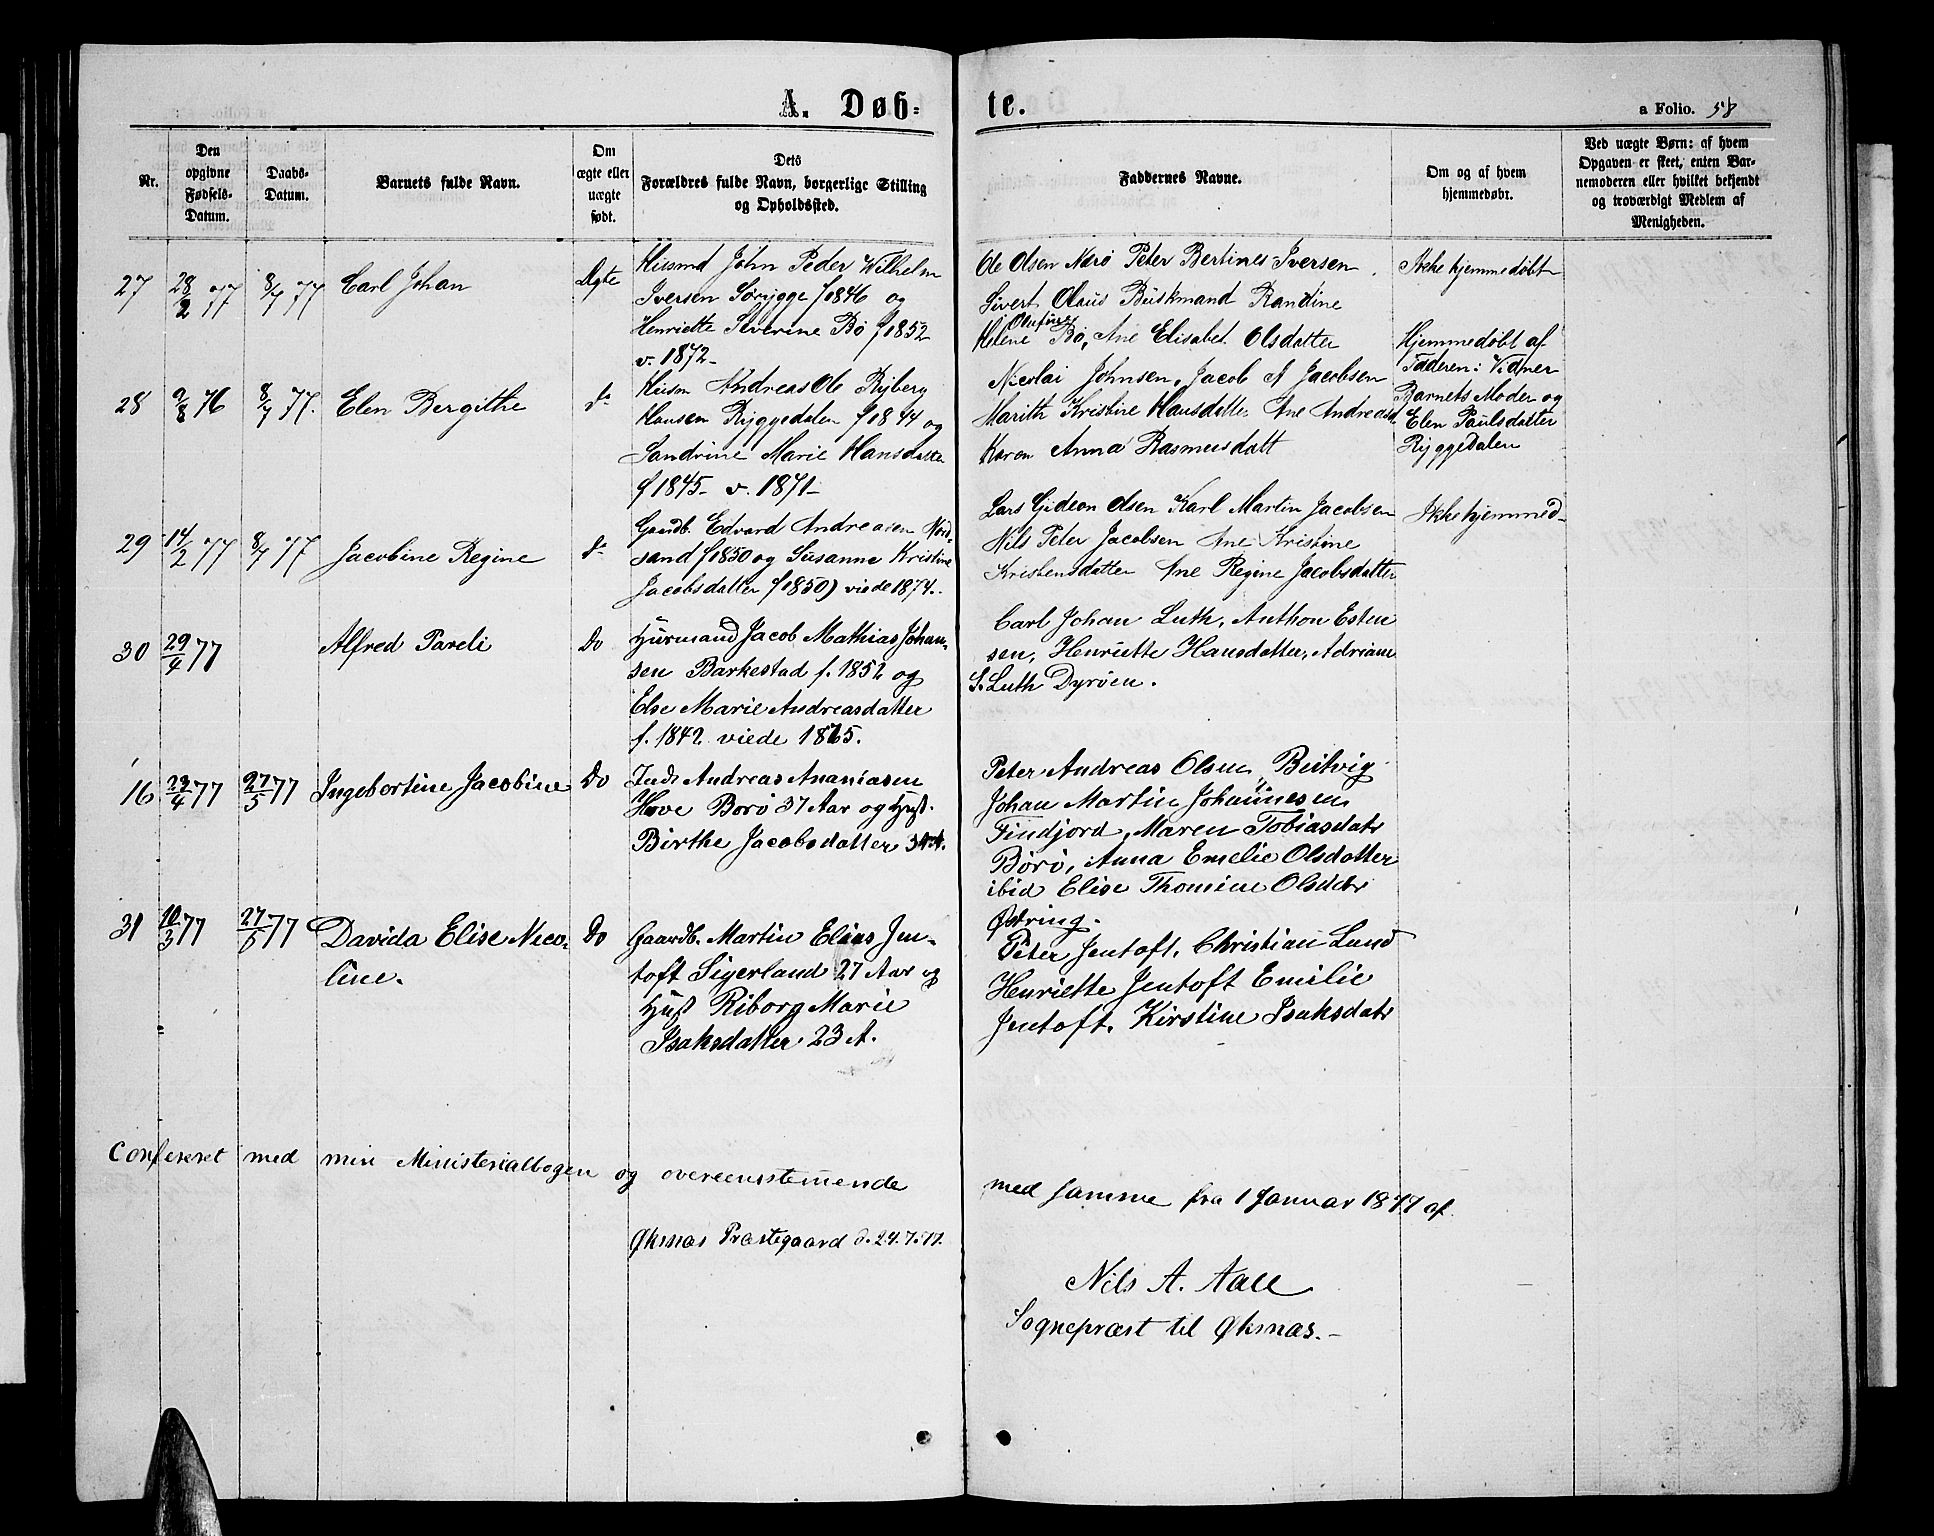 A. Døb-
te.
a Folio. 58
Nr.
Den
opgivne
Fødsels-
Datum.
Daabs-
Datum.
Barnets fulde Navn.
Om
ægte eller
uægte
født.
Dets
Forældres fulde Navn, borgerlige Stilling
og Opholdssted.
Faddernes Navne.
Om og af hvem
hjemmedøbt.
Ved uægte Børn: af hvem
Opgaven er skeet, enten Bar-
nemoderen eller hvilket bekjendt
og troværdigt Medlem af
Menigheden.
27 28/2 77 8/7 77 Carl Johan Ægte
Huusmd John Peder Wilhelm
Iversen Sørygge f 1846 og
Henriette Severine Bø f 1852
v. 1872-
Ole Olsen Nærø Peter Bertines Iversen
Sivert Olaus Buskmand Randine
Olufine
Helene Bø, Ane Elisabet Olsdatter
Ikke hjemmedøbt
28 9/8 76 8/7 77. Elen Bergithe do
Huusm Andreas Ole Ryberg
Hansen Ryggedalen f 1844 og
Sandrine Marie Hansdatter
f 1845- v. 1871-
Nicolai Johnsen, Jacob A Jacobsen
Marith Kristine Hansdatter Ane Andreasd.
Karen Anna Rasmusdatt
Hjemmedøbt af
Faderen: Vidner
Barnets Moder og
Elen Paulsdatter
Ryggedalen
29 14/2 77 8/7 77 Jacobine Regine do
Gaardb. Edvard Andreasen Nord-
sand f 1850 og Susanna Kristine
Jacobsdatter f 1850) viede 1874.
Lars Gideon Olsen Karl Martin Jacobsen
Nils Peter Jacobsen Ane Kristine
Kristensdatter Ane Regine Jacobsdatter
Ikke hjemmed-
30 29/4 77 Alfred Pareli Do
Huusmand Jacob Mathias Johan-
sen Barkestad f. 1852 og
Else Marie Andreasdatter
f. 1842 viede 1875.
Carl Johan Luth, Anthon Esten
sen, Henriette Hansdatter, Adriane
S. Luth Dyrøen.
16 23/4 77 27/5 77 Ingebortine Jacobine Do
Inds Andreas Ananiasen
Hove Børø 37 Aar og Hust.
Birthe Jacobsdatter 34 A.
Peter Andreas Olsen, Beitvig
Johan Martin Johannesen
Findjord, Maren Tobiasdatr
Børø, Anna Emelie Olsdatter
ibid Elise Thomine Olsddtr
Østring.
31 10/3 77 27/5 77 Davida Elise Nico-
line. Do
Gaardb. Martin Elias Jen-
toft Sigerland 27 Aar og
Hust Riborg Marie
Isaksdatter 23 A.
Peter Jentoft, Christian Lund
Henriette Jentoft Emilie
Jentoft. Kirstine Isaksdatr
Confereret med min Ministerialbogen og overeensstemmende
med samme fra 1 Januar 1877 af
Øksnæs Præstegaard d. 24.7.77.
Nils A. Aall
Sognepræst til Øksnæs.-